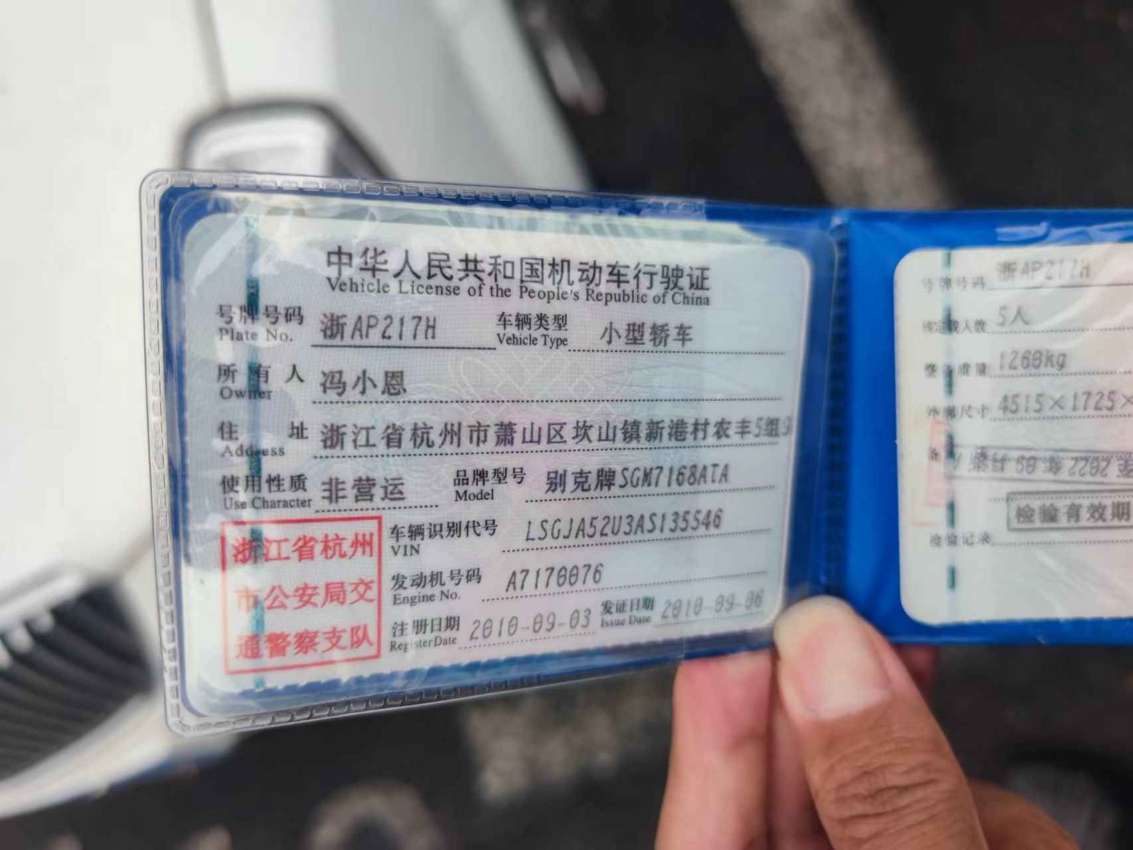 中华人民共和国机动车行驶证
Vehicle License of the People's Republic of China
号牌号码 浙AP217H 车辆类型 小型轿车
Plate No. Vehicle Type
所有人 冯小恩
Owner
住址 浙江省杭州市萧山区坎山镇新港村农丰5组
Address
使用性质 非营运 品牌型号 别克牌SGM7168ATA
Use Character Model
车辆识别代号 LSGJA52U3AS135546
VIN
发动机号码 A7170076
Engine No.
注册日期 2010-09-03 发证日期 2010-09-06
Register Date Issue Date
浙江省杭州
市公安局交
通警察支队
号牌号码 浙AP217H
核定载人数 5人
整备质量 1260kg
外廓尺寸 4515×1725×
检验有效期
检验记录